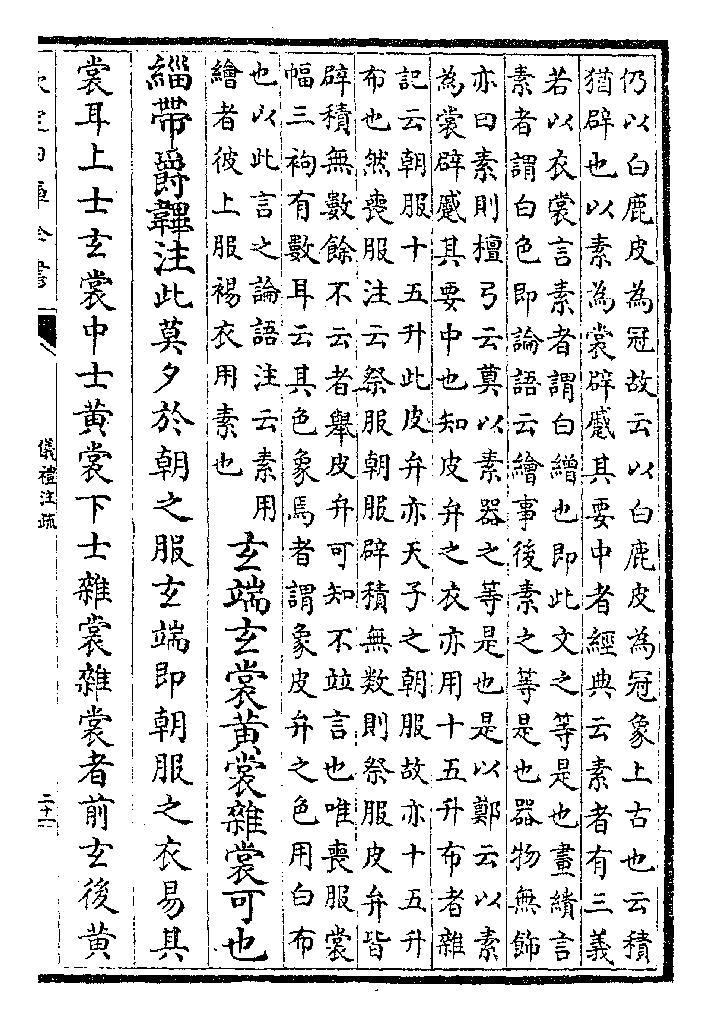 仍以白鹿皮為冠故云以白鹿皮為冠象上古也云積
猶辟也以素為裳辟蹙其要中者經典云素者有三義
若以衣裳言素者謂白繒也即此文之等是也畫繢言
素者謂白色即論語云繪事後素之等是也器物無飾
亦曰素則檀弓云奠以素器之等是也是以鄭云以素
為裳辟蹙其要中也知皮弁之衣亦用十五升布者雜
記云朝服十五升此皮弁亦天子之朝服故亦十五升
布也然喪服注云祭服朝服辟積無數則祭服皮弁皆
辟積無數餘不云者舉皮弁可知不竝言也唯喪服裳
幅三袧有數耳云其色象焉者謂象皮弁之色用白布
也以此言之論語注云素用
繪者彼上服裼衣用素也
玄端玄裳黃裳雜裳可也
緇帶爵韠注此莫夕於朝之服玄端即朝服之衣易其
裳耳上士玄裳中士黃裳下士雜裳雜裳者前玄後黃
欽定四庫全書
儀禮注疏
二十一